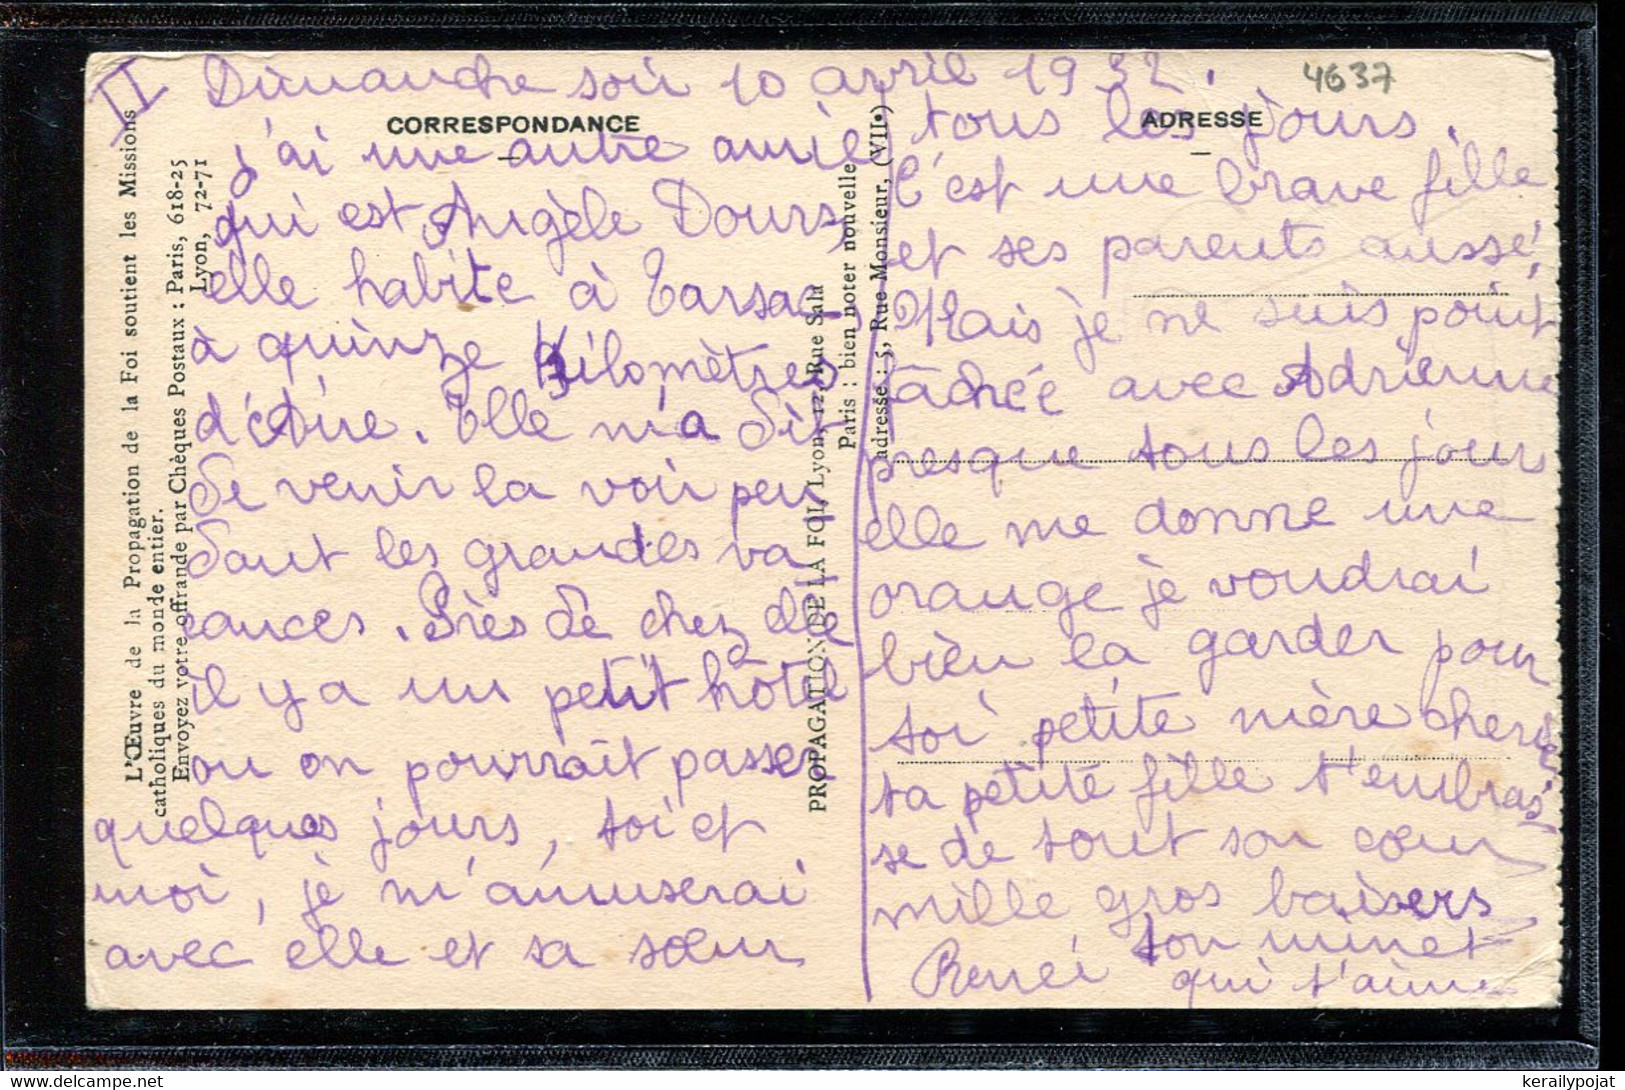 II
Dimanche soir 10 avril 1932.
4637
CORRESPONDANCE
j'ai une autre amie
qui est Angèle Dours,
elle habite à Tarsac,
à quinze kilomètres
d'Aire. Elle m'a dit
de venir la voir pen
dant les grandes va
cances. Près de chez elle
il y a un petit hôtel
ou on pourrait passer
quelques jours, toi et
moi, je m'amuserai
avec elle et sa sœur
ADRESSE
tous les jours.
C'est une brave fille
et ses parents aussi,
Mais je ne suis point
fâchée avec Adrienne
presque tous les jours
elle me donne une
orange je voudrai
bien la garder pour
toi petite mère cherie
ta petite fille t'embras
se de tout son cœur
mille gros baisers
ton minet
Renée qui t'aime
L'Œuvre de la Propagation de la Foi soutient les Missions
catholiques du monde entier.
Envoyez votre offrande par Chèques Postaux : Paris, 618-25
Lyon, 72-71
PROPAGATION DE LA FOI, Lyon, 12, Rue Sala
Paris : bien noter nouvelle
adresse : 5, Rue Monsieur, (VIIe)
kerailypojat